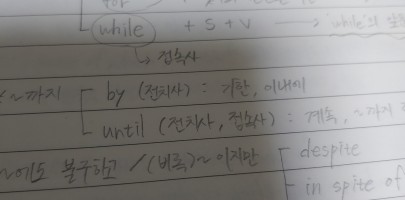 while + S + V → while의
↳ 접속사
~까지 by (전치사) : 기한, 이내에
until (전치사, 접속사) : 계속, ~까지
~에도 불구하고 / (비록) ~이지만 despite
in spite of